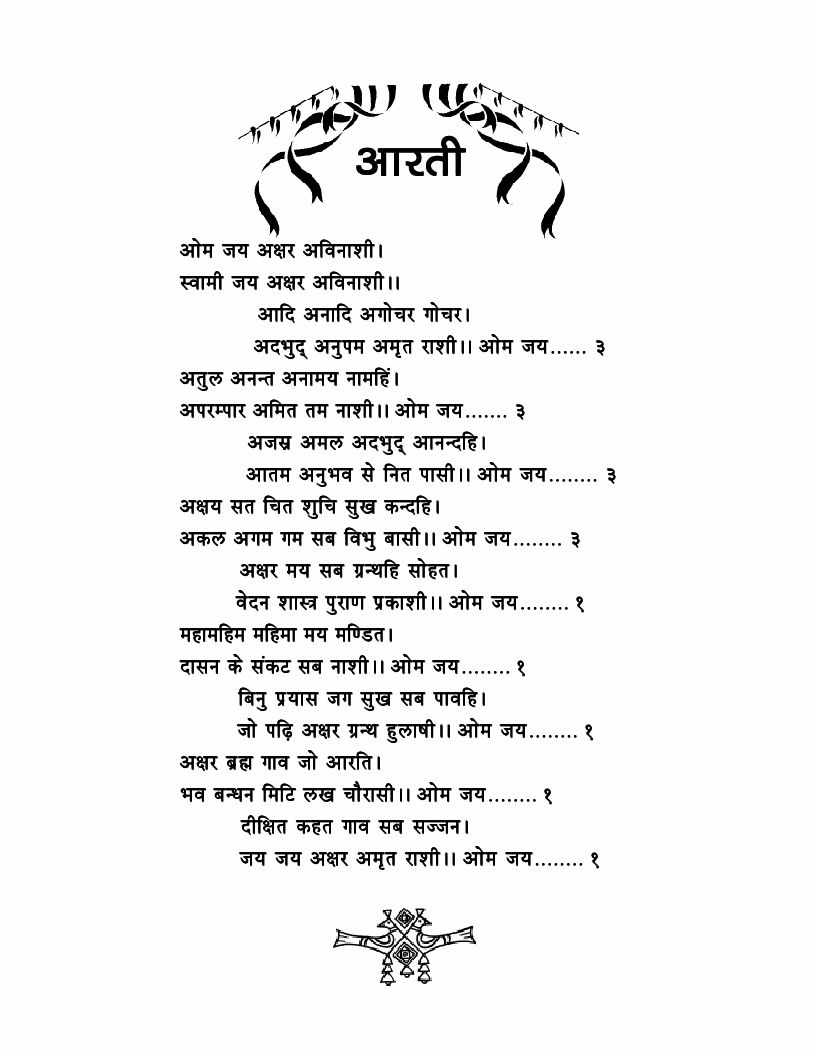 आरती
ओम जय अक्षर अविनाशी।
स्वामी जय अक्षर अविनाशी।।
आदि अनादि अगोचर गोचर।
अदभुद् अनुपम अमृत राशी।। ओम जय...... ३
अतुल अनन्त अनामय नामहिं।
अपरम्पार अमित तम नाशी।। ओम जय....... ३
अजस्र अमल अदभुद् आनन्दहि।
आतम अनुभव से नित पासी।। ओम जय........ ३
अक्षय सत चित शुचि सुख कन्दहि।
अकल अगम गम सब विभु बासी।। ओम जय........ ३
अक्षर मय सब ग्रन्थहि सोहत।
वेदन शास्त्र पुराण प्रकाशी।। ओम जय........ १
महामहिम महिमा मय मण्डित।
दासन के संकट सब नाशी।। ओम जय........ १
बिनु प्रयास जग सुख सब पावहि।
जो पढ़ि अक्षर ग्रन्थ हुलाषी।। ओम जय........ १
अक्षर ब्रह्म गाव जो आरति।
भव बन्धन मिटि लख चौरासी।। ओम जय........ १
दीक्षित कहत गाव सब सज्जन।
जय जय अक्षर अमृत राशी।। ओम जय........ १